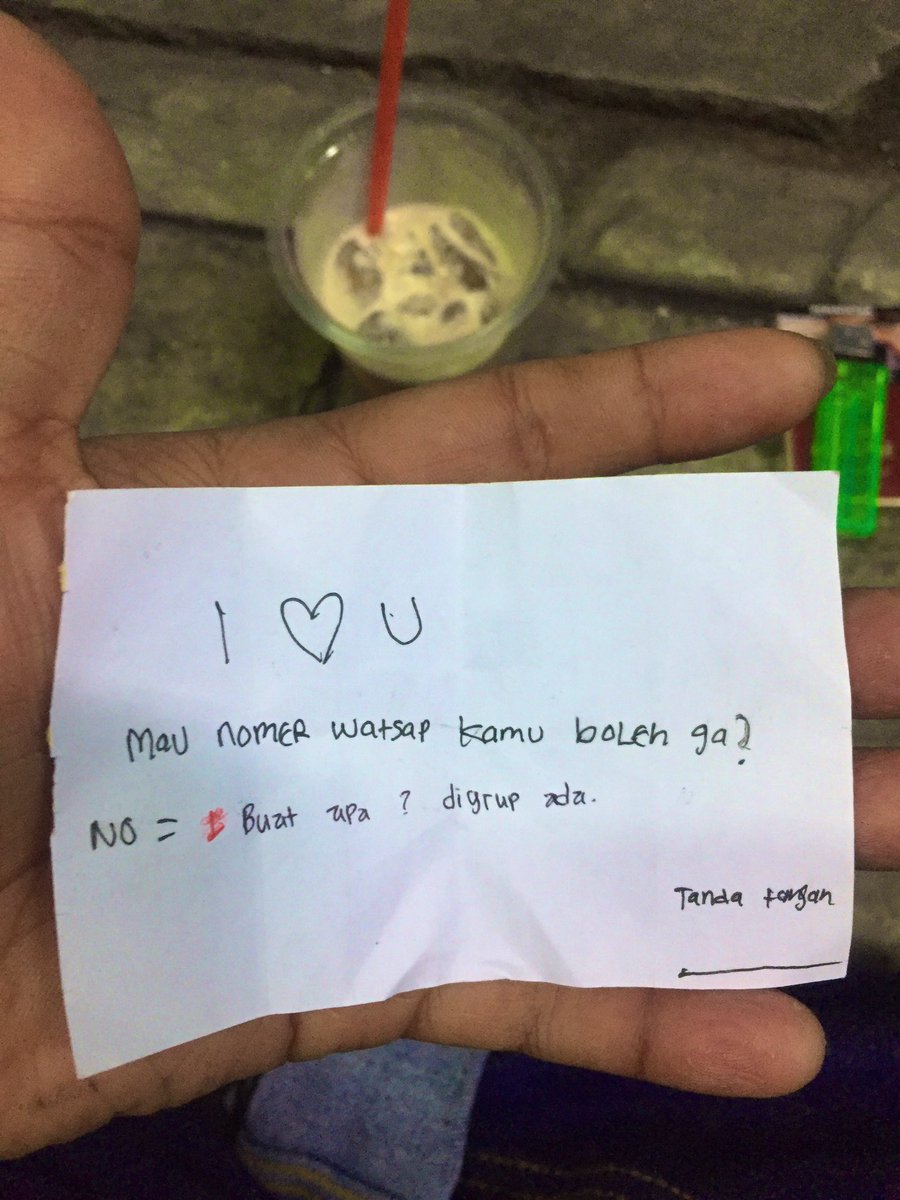 I ♡ U
Mau nomer watsap kamu boleh ga?
NO = Buat apa ? digrup ada.
Tanda tangan